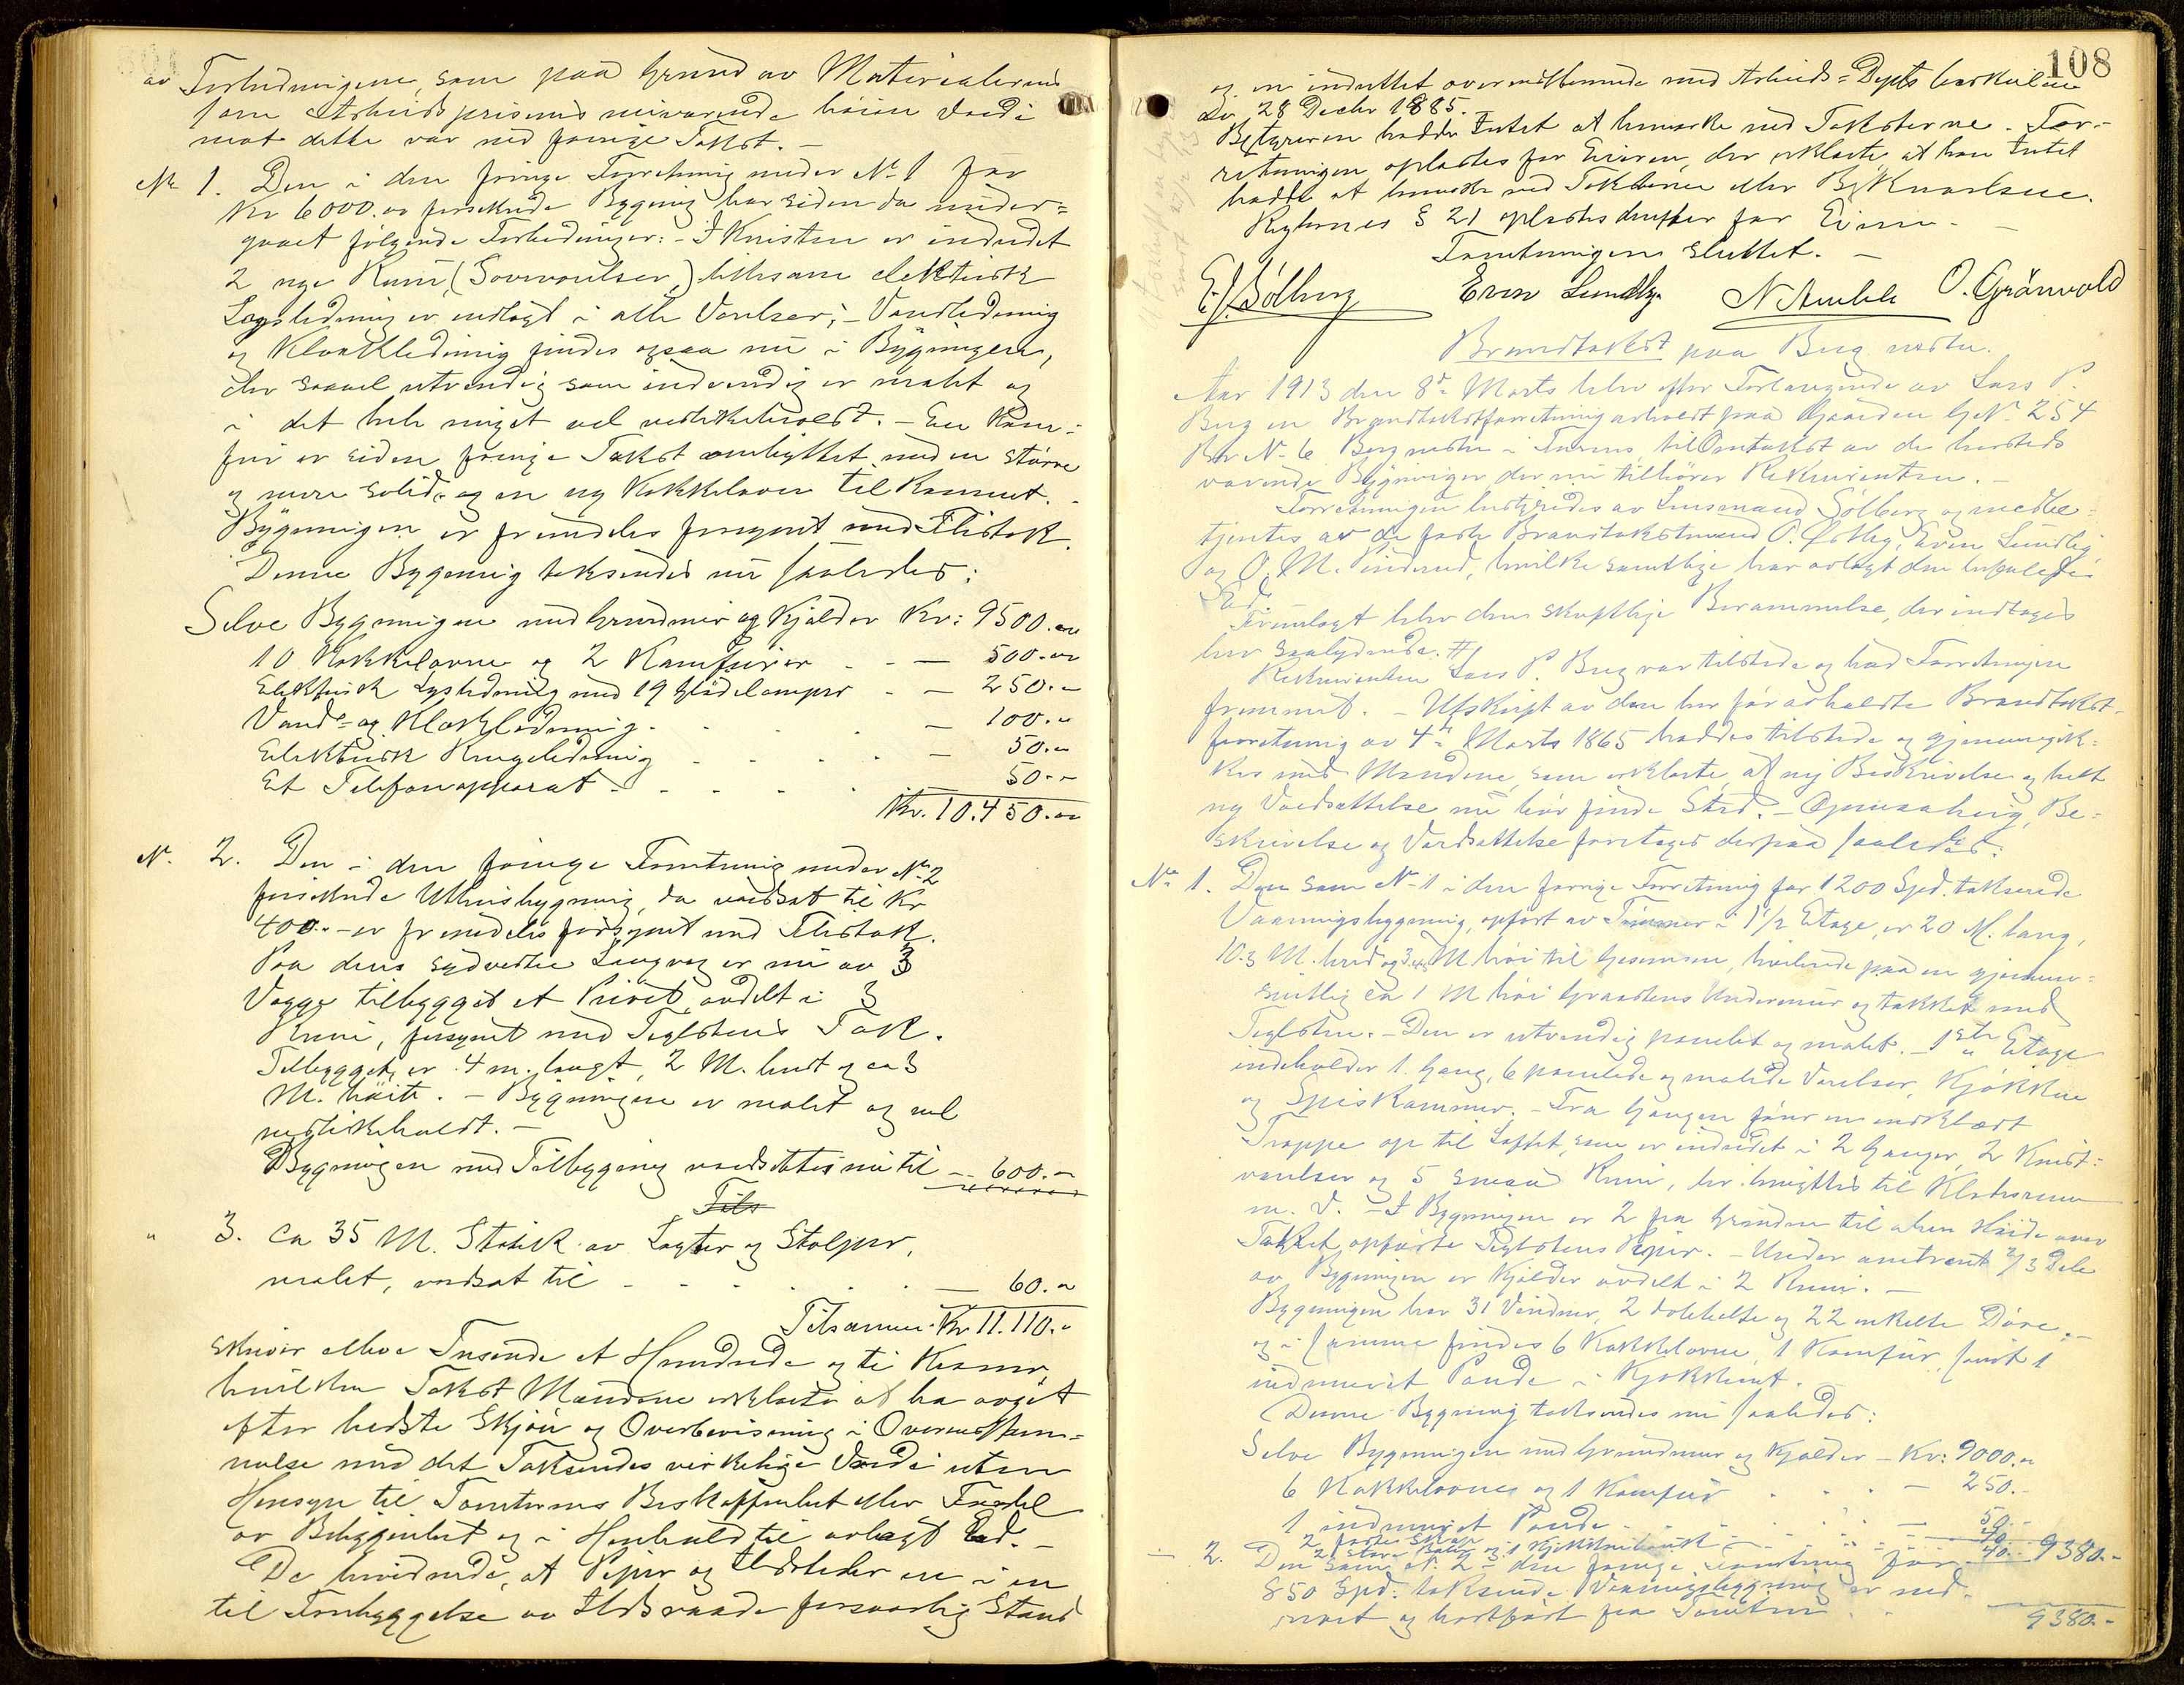 av Forbedringene, som paa Grund av Materialernes
som Arbeidsprisernes nuværende høiere Værdi
mot dette var ved forrige Takst. –
No 1. Den i den forrige Forretning under No 1 for
Kr 6000.00 forsikrede Bygning har siden da under=
gaaet følgende Forbedringer: – I Kvisten er indredet
2 nye Rum, (Soveværelser,) likesom elektrisk
Lysledning er indlagt i alle Værelser; – Vandledning
og Kloakledning findes ogsaa nu i Bygningen,
der saavel utvendig som indvendig er malet og
i det hele meget vel vedlikeholdt. – En Kom=
fur er siden forrige Takst ombyttet med en større
og mere solid, og en ny Kakkelovn til kommet. –
Bygningen er fremdeles forsynt med Flistak.
Denne Bygning takseredes nu saaledes:
Selve Bygningen med Grundmur og Kjælder Kr: 9500.00
10 Kakkelovne og 2 Komfurer - - — 500.00
Elektrisk Lysledning med 19 Glødelamper - — 250.-
Vand- og Kloakledning - - - — 100.-
Elektrisk Ringeledning - - - - — 50.-
Et Telefonapparat - - - - - 50.-
Kr. 10.450.00
No. 2. Den i den forrige Forretning under No 2
forsikrede Uthusbygning, da værdsat til Kr
400.- er fremdeles forsynt med Flistak.
Paa dens sydvestre Langvæg er nu av 3
Vægge tilbygget et Privet, avdelt i 3
Rum, forsynet med Teglstens Tak.
Tilbygget er 4 m. langt, 2 M. bredt og ca 3
M. høit. – Bygningen er malet og vel
vedlikeholdt. –
Bygningen med Tilbygning værdsattes nu til — 600.-
Tils
" 3. Ca 35 M. Stakit av Lagter og Stolper,
malet, værdsat til - - - - — 60.-
Tilsammen Kr 11.110.-
skriver elleve Tusinde et Hundrede og ti Kroner,
hvilken Takst Mændene erklærte at ha avgit
efter bedste Skjøn og Overbevisning i Overensstem=
melse med det Takseredes virkelige Værdi uten
Hensyn til Tomternes Beskaffenhet eller Fordel
av Beliggenhet og i Henhold til avlagt Ed. –
De bevidnede, at Piper og Ildsteder er i en
til Forebyggelse av Ildsvaade forsvarlig Stand
108
og er indrettet overensstemmende med Arbeids=Depts bestemmelser
av 28 Decbr 1885.
Bestyreren hadde Intet at bemerke ved Taksterne. For-
retningen oplæstes for Eieren, der erklærte at han Intet
hadde at bemerke ved Taksterne eller Beskrivelsen.
Reglernes § 21 oplæstes derefter for Eieren. –
Forretningen sluttet. –
E. Sølberg Even Lundby. N Amble O. Grönvold
Brandtakst paa Berg nedre.
Aar 1913 den 8de Marts blev efter Forlangende av Lars P.
Berg en Brandtakstforretning avholdt paa Gaarden G.No 254
Br No 6 Berg nedre i Furnes, til Omtakst av de hersteds
værende Bygninger der nu tilhører Rekvirenten. –
Forretningen bestyredes av Lensmand Sølberg og medbe=
tjentes av de faste Brandtakstmænd O. Østby, Even Lundby
og O. M. Pinderud, hvilke samtlige har avlagt den befalede
Ed. –
Fremlagt blev den skriftlige Berammelse, der indtages
her saalydende: #
Rekvirenten Lars P. Berg var tilstede og bad Forretningen
fremmet. – Utskrift av den her før avholdte Brandtakst-
forretning av 4de Marts 1865 haddes tilstede og gjennemgik=
kes med Mændene, som erklærte, at ny Beskrivelse og helt
ny Værdsættelse nu bør finde Sted. – Opmaaling, Be=
skrivelse og Værdsættelse foretages derpaa saaledes:
No 1. Den som No 1 i den forrige Forretning for 1200 Spd. takserede
Vaaningsbygning, opført av Tømmer i 1 1/2 Etage, er 20 M. lang,
10.3 M. bred og 3.45 M høi til Gesimsen, hvilende paa en gjennem=
snitlig ca 1 M høi Graastens Undermur og tækket med
Teglsten. – Den er utvendig panelet og malet. – 1ste Etage
indeholder 1 Gang, 6 panelede og malede Værelser, Kjøkken
og Spiskammer. – Fra Gangen fører en indklædt
Trappe op til Loftet, som er indredet i 2 Ganger, 2 Kvist=
værelser og 5 smaa Rum, der benyttes til Klædesrum
m. v. – I Bygningen er 2 fra Grunden til uten Høide over
Taket opførte Teglstens Piper. – Under omtrent 2/3 Dele
av Bygningen er Kjælder avdelt i 2 Rum. –
Bygningen har 31 Vinduer, 2 dobbelte og 22 enkelte Døre, –
og i samme findes 6 Kakkelovne, 1 Komfur, samt 1
indmuret Pande i Kjøkkenet.
Denne Bygning takseredes nu saaledes:
Selve Bygningen med Grundmur og Kjælder – Kr: 9000.-
6 Kakkelovne og 1 Komfur - - - — 250.-
1 indmuret Pande - - - - — 50.-
2 faste Skap - - - 40.-
2 store og 1 Kjøkkenbænk - - 40.- 9380.-
— 2. Den som No 2 i den forrige Forretning for
850 Spd. takserede Vaaningsbygning er ned-
revet og bortført fra Tomten. - 9380.-